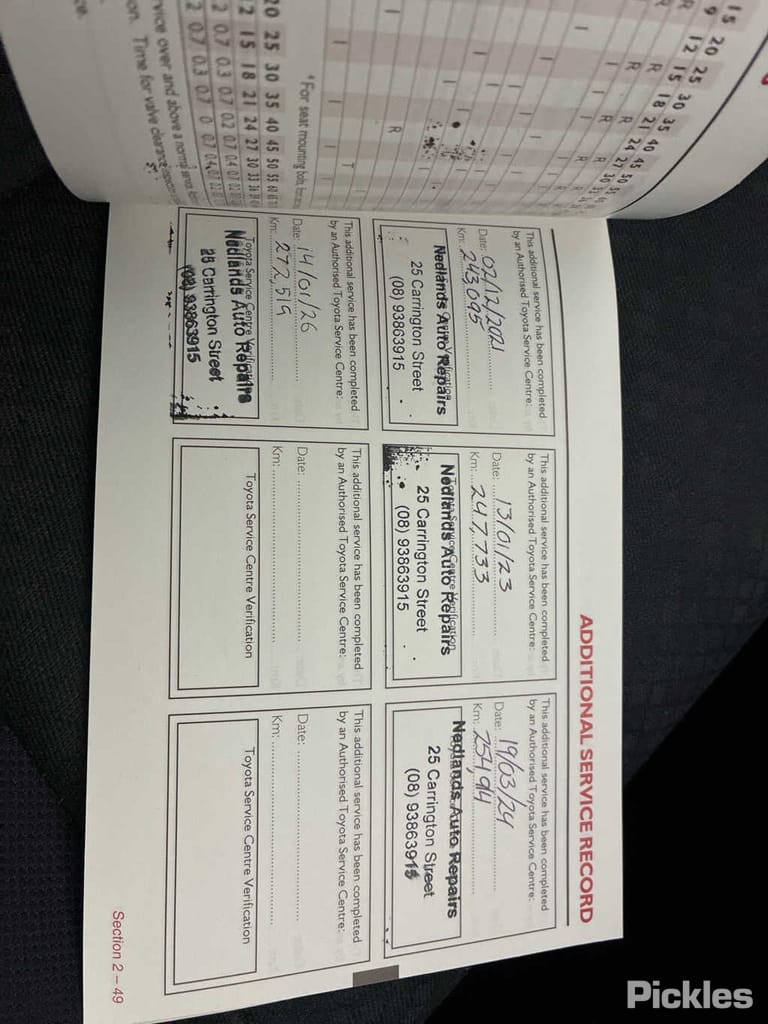 ADDITIONAL SERVICE RECORD
This additional service has been completed
by an Authorised Toyota Service Centre:
Date: 02/12/2021
Km: 243,095
Nedlands Auto Repairs
25 Carrington Street
(08) 93863915
This additional service has been completed
by an Authorised Toyota Service Centre:
Date: 13/01/23
Km: 247,733
Toyota Service Centre Verification
Nedlands Auto Repairs
25 Carrington Street
(08) 93863915
This additional service has been completed
by an Authorised Toyota Service Centre:
Date: 19/03/24
Km: 254,94
Nedlands Auto Repairs
25 Carrington Street
(08) 93863915
This additional service has been completed
by an Authorised Toyota Service Centre:
Date: 14/01/26
Km: 272,519
Toyota Service Centre Verification
Nedlands Auto Repairs
25 Carrington Street
(08) 93863915
This additional service has been completed
by an Authorised Toyota Service Centre:
Date:
Km:
Toyota Service Centre Verification
This additional service has been completed
by an Authorised Toyota Service Centre:
Date:
Km:
Toyota Service Centre Verification
Section 2 – 49
15 20 25 30 35 40 45 50
9 12 15 18 21 24 27 30
*For seat mounting bolts,
20 25 30 35 40 45 50 55
12 15 18 21 24 27 30 33
over and above a normal
Time for valve clearance
Pickles